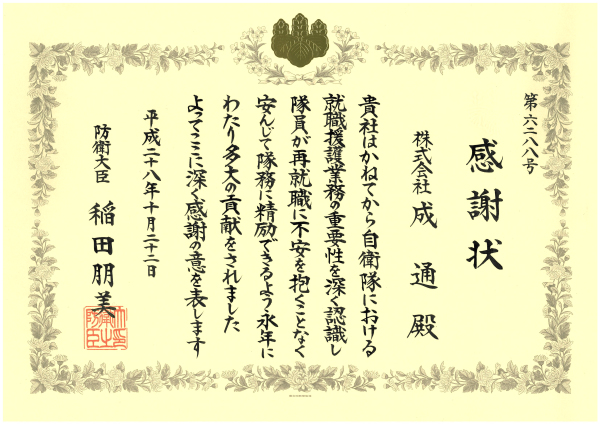 第六二八八号
感謝状
株式会社 成通殿
貴社はかねてから自衛隊における
就職援護業務の重要性を深く認識し
隊員が再就職に不安を抱くことなく
安んじて隊務に精励できるよう永年に
わたり多大の貢献をされました
よってここに深く感謝の意を表します
平成二十八年十月二十二日
防衛大臣 稲田朋美